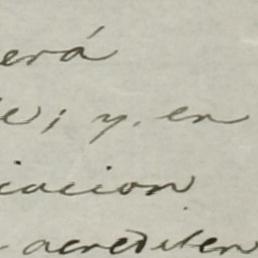 erá
e; y. en
iacion
acrediten